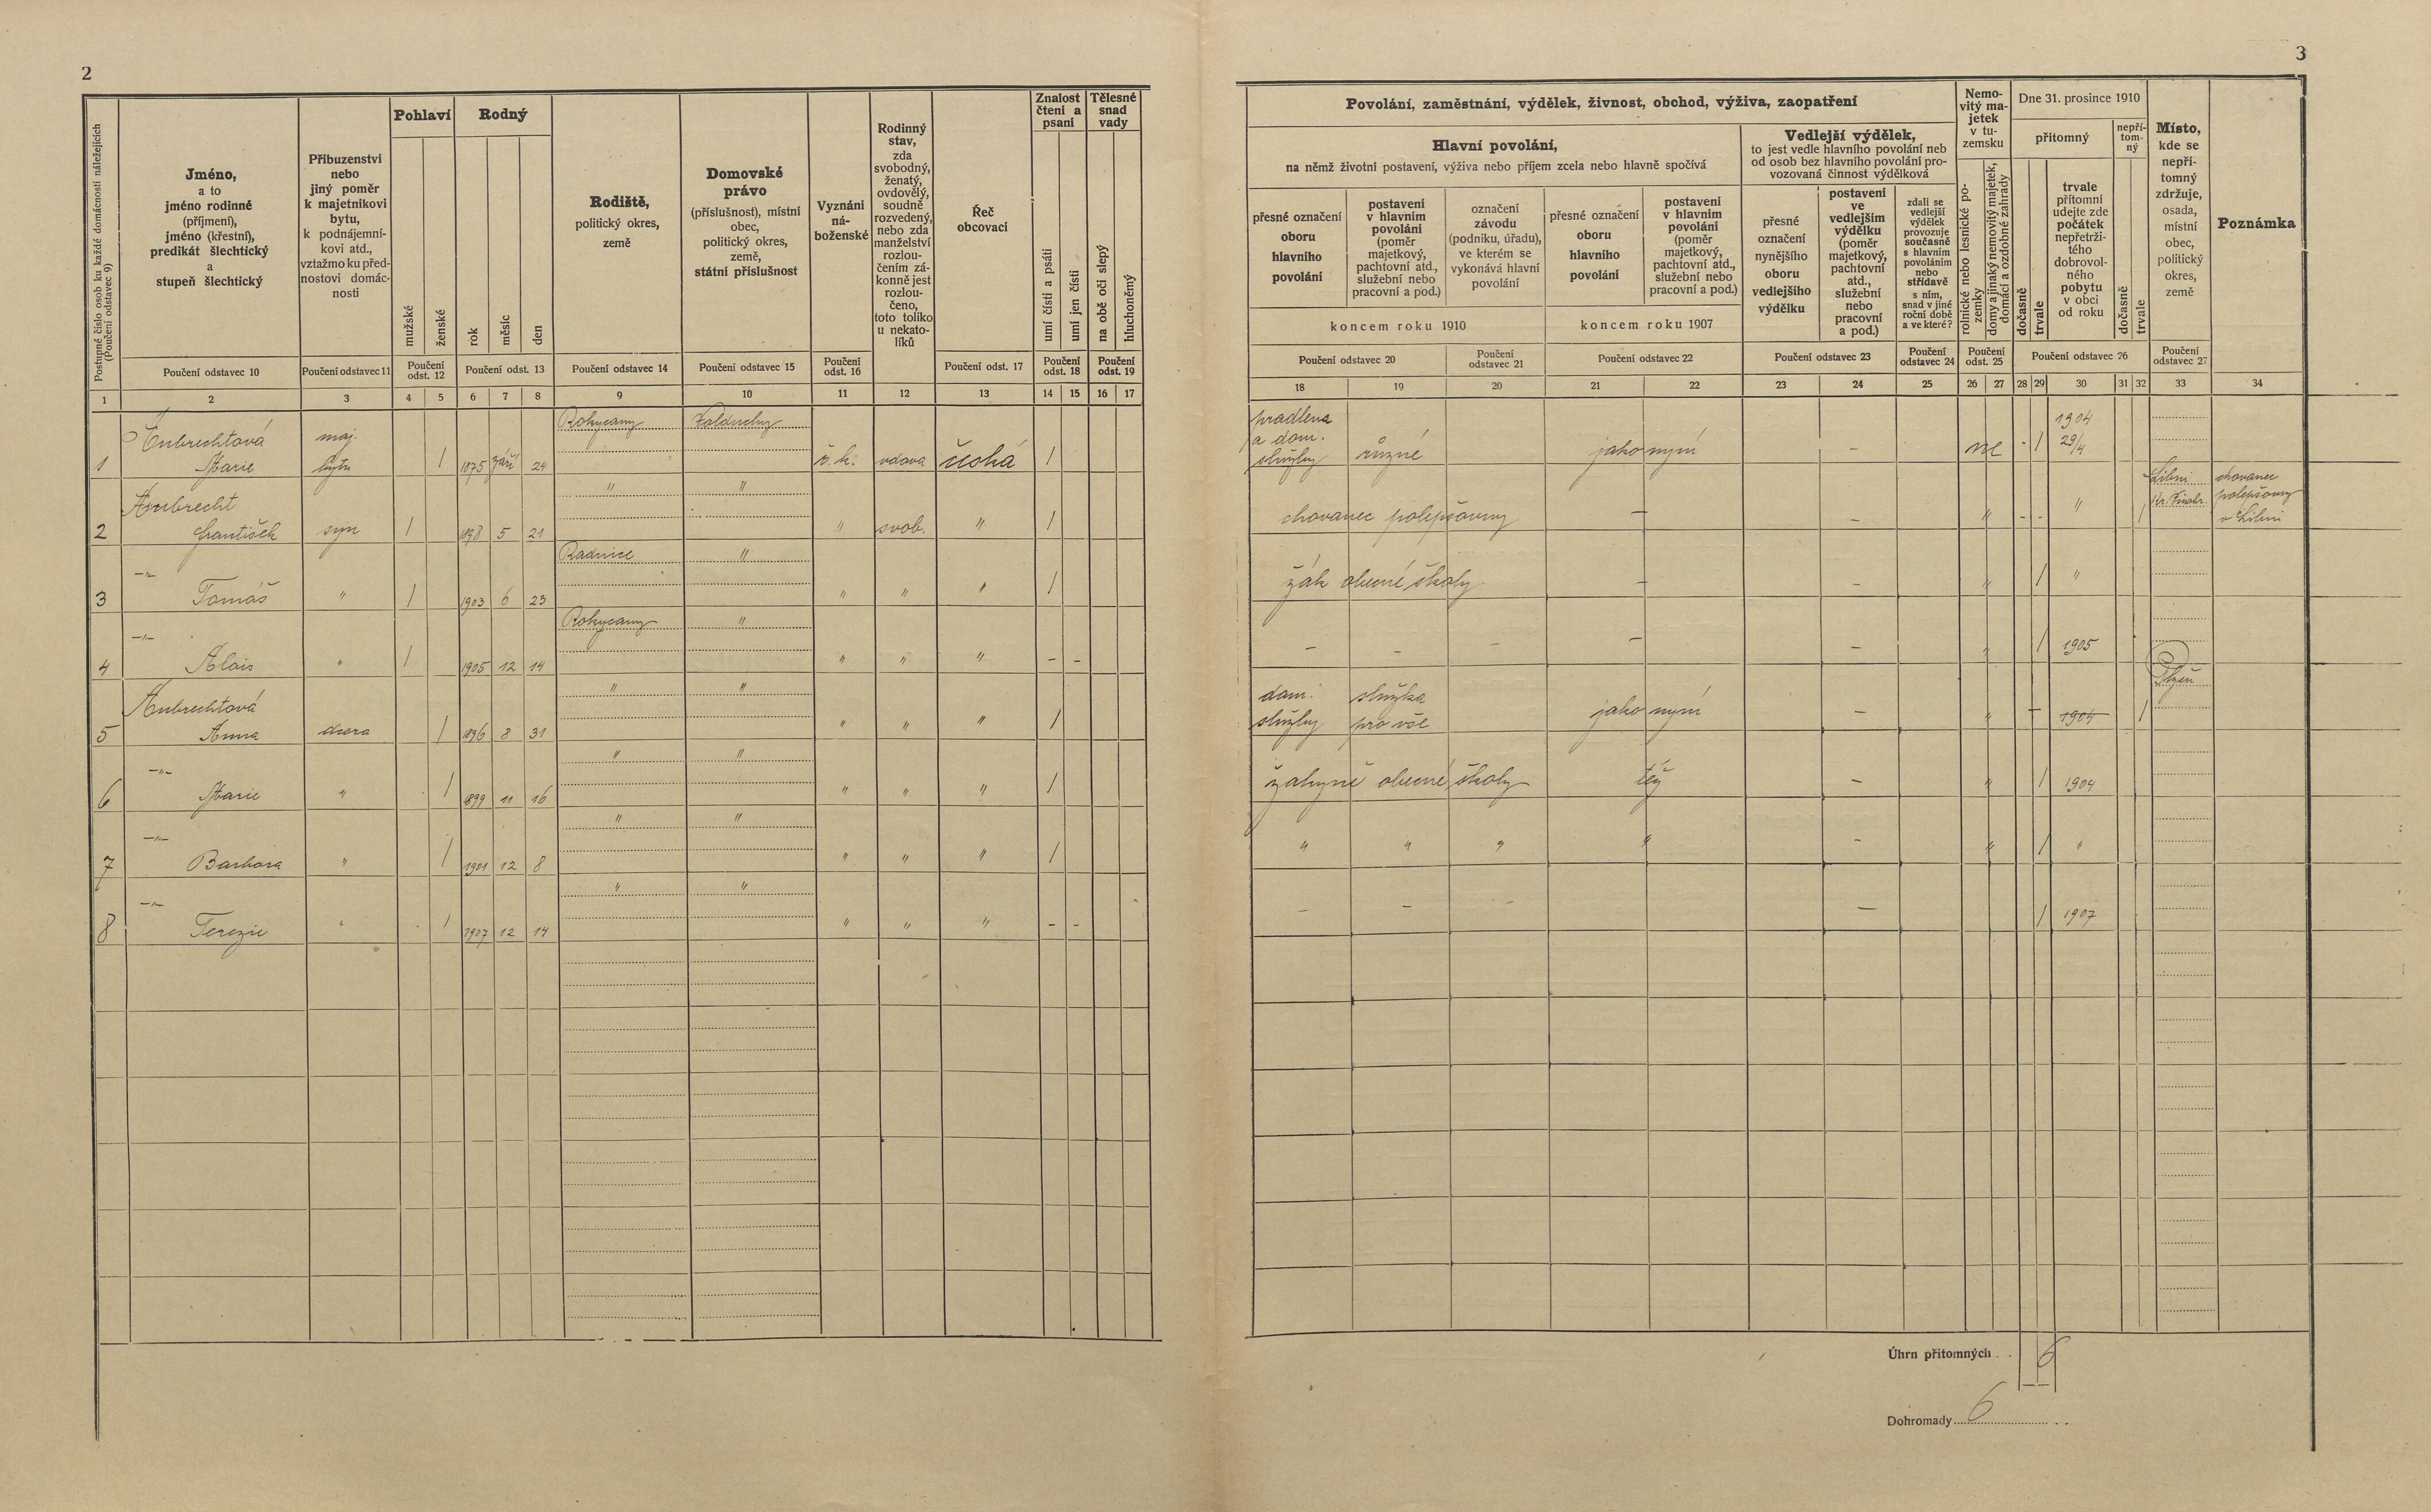 2
Postupné číslo osob ku každé domácnosti náležejících
(Poučení odstavec 9)
Jméno,
a to
jméno rodinné
(příjmení),
jméno (křestní),
predikát šlechtický
a
stupeň šlechtický
Poučení odstavec 10
Příbuzenství
nebo
jiný poměr
k majetníkovi
bytu,
k podnájemní-
kovi atd.,
vztažmo ku před-
nostovi domác-
nosti
Poučení odstavec 11
Pohlaví
mužské
ženské
Poučení
odst. 12
Rodný
rok
měsíc
den
Poučení odst. 13
Rodiště,
politický okres,
země
Poučení odstavec 14
Domovské
právo
(příslušnost), místní
obec,
politický okres,
země,
státní příslušnost
Poučení odstavec 15
Vyznání
ná-
boženské
Poučení
odst. 16
Rodinný
stav,
zda
svobodný,
ženatý,
ovdovělý,
soudně
rozvedený,
nebo zda
manželství
rozlou-
čením zá-
konně jest
rozlou-
čeno,
toto toliko
u nekato-
líků
Řeč
obcovací
Poučení odst. 17
Znalost
čtení a
psaní
umí čísti a psáti
umí jen čísti
Poučení
odst. 18
Tělesné
snad
vady
na obě oči slepý
hluchoněmý
Poučení
odst. 19
1 2 3 4 5 6 7 8 9 10 11 12 13 14 15 16 17
Rokycany
maj.
1 Marie bytu / 1875 září 24 ř. k. vdova česká /
" "
Ambrecht
2 František syn / 1898 5 21 " svob. " /
Radnice "
—"—
3 Tomáš " / 1903 6 23 " " " /
Rokycany "
—"—
4 Alois " / 1905 12 14 " " " – –
" "
Ambrechtová
5 Anna dcera / 1896 8 31 " " " /
" "
—"—
6 Marie " / 1899 11 16 " " " /
" "
—"—
7 Barbora " / 1901 12 8 " " " /
" "
—"—
8 Terezie " / 1907 12 14 " " " – –
3
Povolání, zaměstnání, výdělek, živnost, obchod, výživa, zaopatření
Hlavní povolání,
na němž životní postavení, výživa nebo příjem zcela nebo hlavně spočívá
přesné označení
oboru
hlavního
povolání
postavení
v hlavním
povolání
(poměr
majetkový,
pachtovní atd.,
služební nebo
pracovní a pod.)
označení
závodu
(podniku, úřadu),
ve kterém se
vykonává hlavní
povolání
koncem roku 1910
přesné označení
oboru
hlavního
povolání
postavení
v hlavním
povolání
(poměr
majetkový,
pachtovní atd.,
služební nebo
pracovní a pod.)
koncem roku 1907
Poučení odstavec 20
Poučení
odstavec 21
Poučení odstavec 22
Vedlejší výdělek,
to jest vedle hlavního povolání neb
od osob bez hlavního povolání pro-
vozovaná činnost výdělková
přesné
označení
nynějšího
oboru
vedlejšího
výdělku
postavení
ve
vedlejším
výdělku
(poměr
majetkový,
pachtovní
atd.,
služební
nebo
pracovní
a pod.)
zdali se
vedlejší
výdělek
provozuje
současně
s hlavním
povoláním
nebo
střídavě
s ním,
snad v jiné
roční době
a ve které?
Poučení odstavec 23
Poučení
odstavec 24
Nemo-
vitý ma-
jetek
v tu-
zemsku
rolnické nebo lesnické po-
zemky
domy a jinaký nemovitý majetek,
domácí a ozdobné zahrady
Poučení
odst. 25
Dne 31. prosince 1910
přítomný
dočasně
trvale
trvale
přítomní
udejte zde
počátek
nepřetrži-
tého
dobrovol-
ného
pobytu
v obci
od roku
nepří-
tom-
ný
dočasně
trvale
Poučení odstavec 26
Místo,
kde se
nepří-
tomný
zdržuje,
osada,
místní
obec,
politický
okres,
země
Poučení
odstavec 27
Poznámka
18 19 20 21 22 23 24 25 26 27 28 29 30 31 32 33 34
pradlena 1904
a dom. 29/4
služby různé jako nyní – ne - /
Libni chovanec
Kr. Vinohr. polepšovny
chovanec polepšovny – – " - - " /
v Libni
žák obecné školy – – " / "
– – – – – " / 1905
Plzeň
dom. služka
služby pro vše jako nyní – " – 1904 /
žakyně obecné školy též – " / 1904
" " " " – " / "
– – – – / 1907
Úhrn přítomných . . 6
Dohromady 6